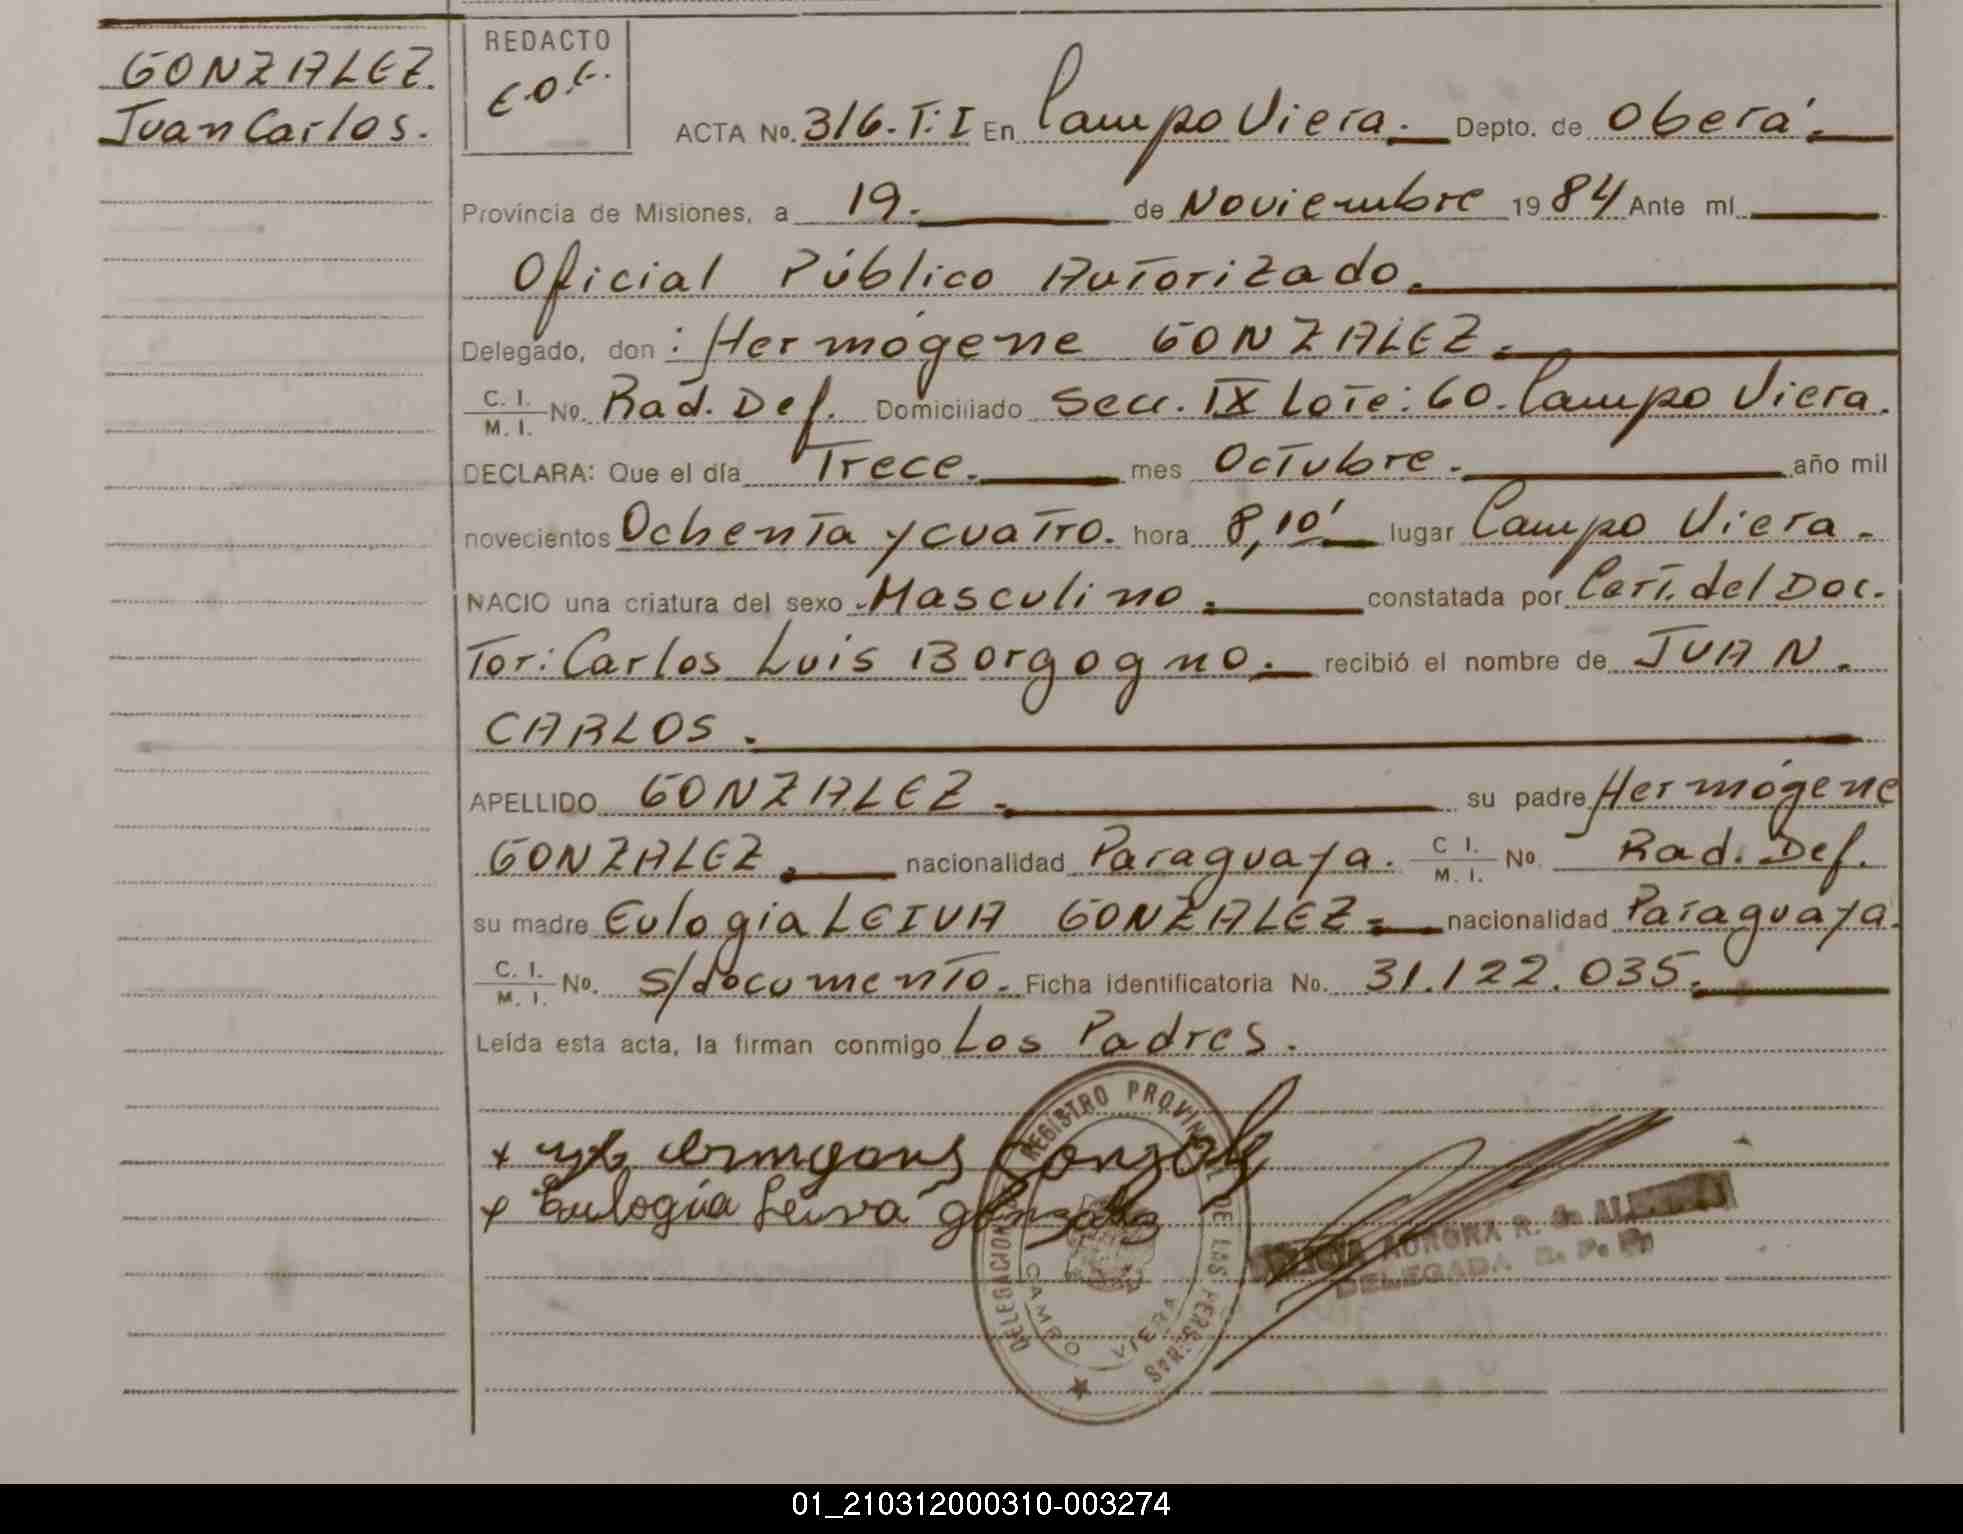 GONZALEZ.
Juan Carlos.
REDACTO
ACTA No. 316. T: I En Campo Viera. Depto. de Oberá.
Provincia de Misiones, a 19. de Noviembre 1984 Ante mí
Oficial Público Autorizado.
Delegado, don: Hermógene GONZALEZ.
C. I. / M. I. No. Rad. Def. Domiciliado Secc. IX Lote: 60. Campo Viera.
DECLARA: Que el día Trece. mes Octubre. año mil
novecientos Ochenta y cuatro. hora 8,10' lugar Campo Viera.
NACIO una criatura del sexo Masculino. constatada por Cert. del Doc.
tor: Carlos Luis Borgogno. recibió el nombre de JUAN.
CARLOS.
APELLIDO GONZALEZ. su padre Hermógene
GONZALEZ. nacionalidad Paraguaya. C I. / M. I. No. Rad. Def.
su madre Eulogia LEIVA GONZALEZ= nacionalidad Paraguaya.
C. I. / M. I. No. s/documento. Ficha identificatoria No. 31.122.035.
Leída esta acta, la firman conmigo Los Padres.
x
x Eulogia Leiva gonzalez
DELEGACION REGISTRO PROVINCIAL DE LAS PERSONAS
CAMPO VIERA
AURORA R. de
DELEGADA R. P. P.
01_210312000310-003274